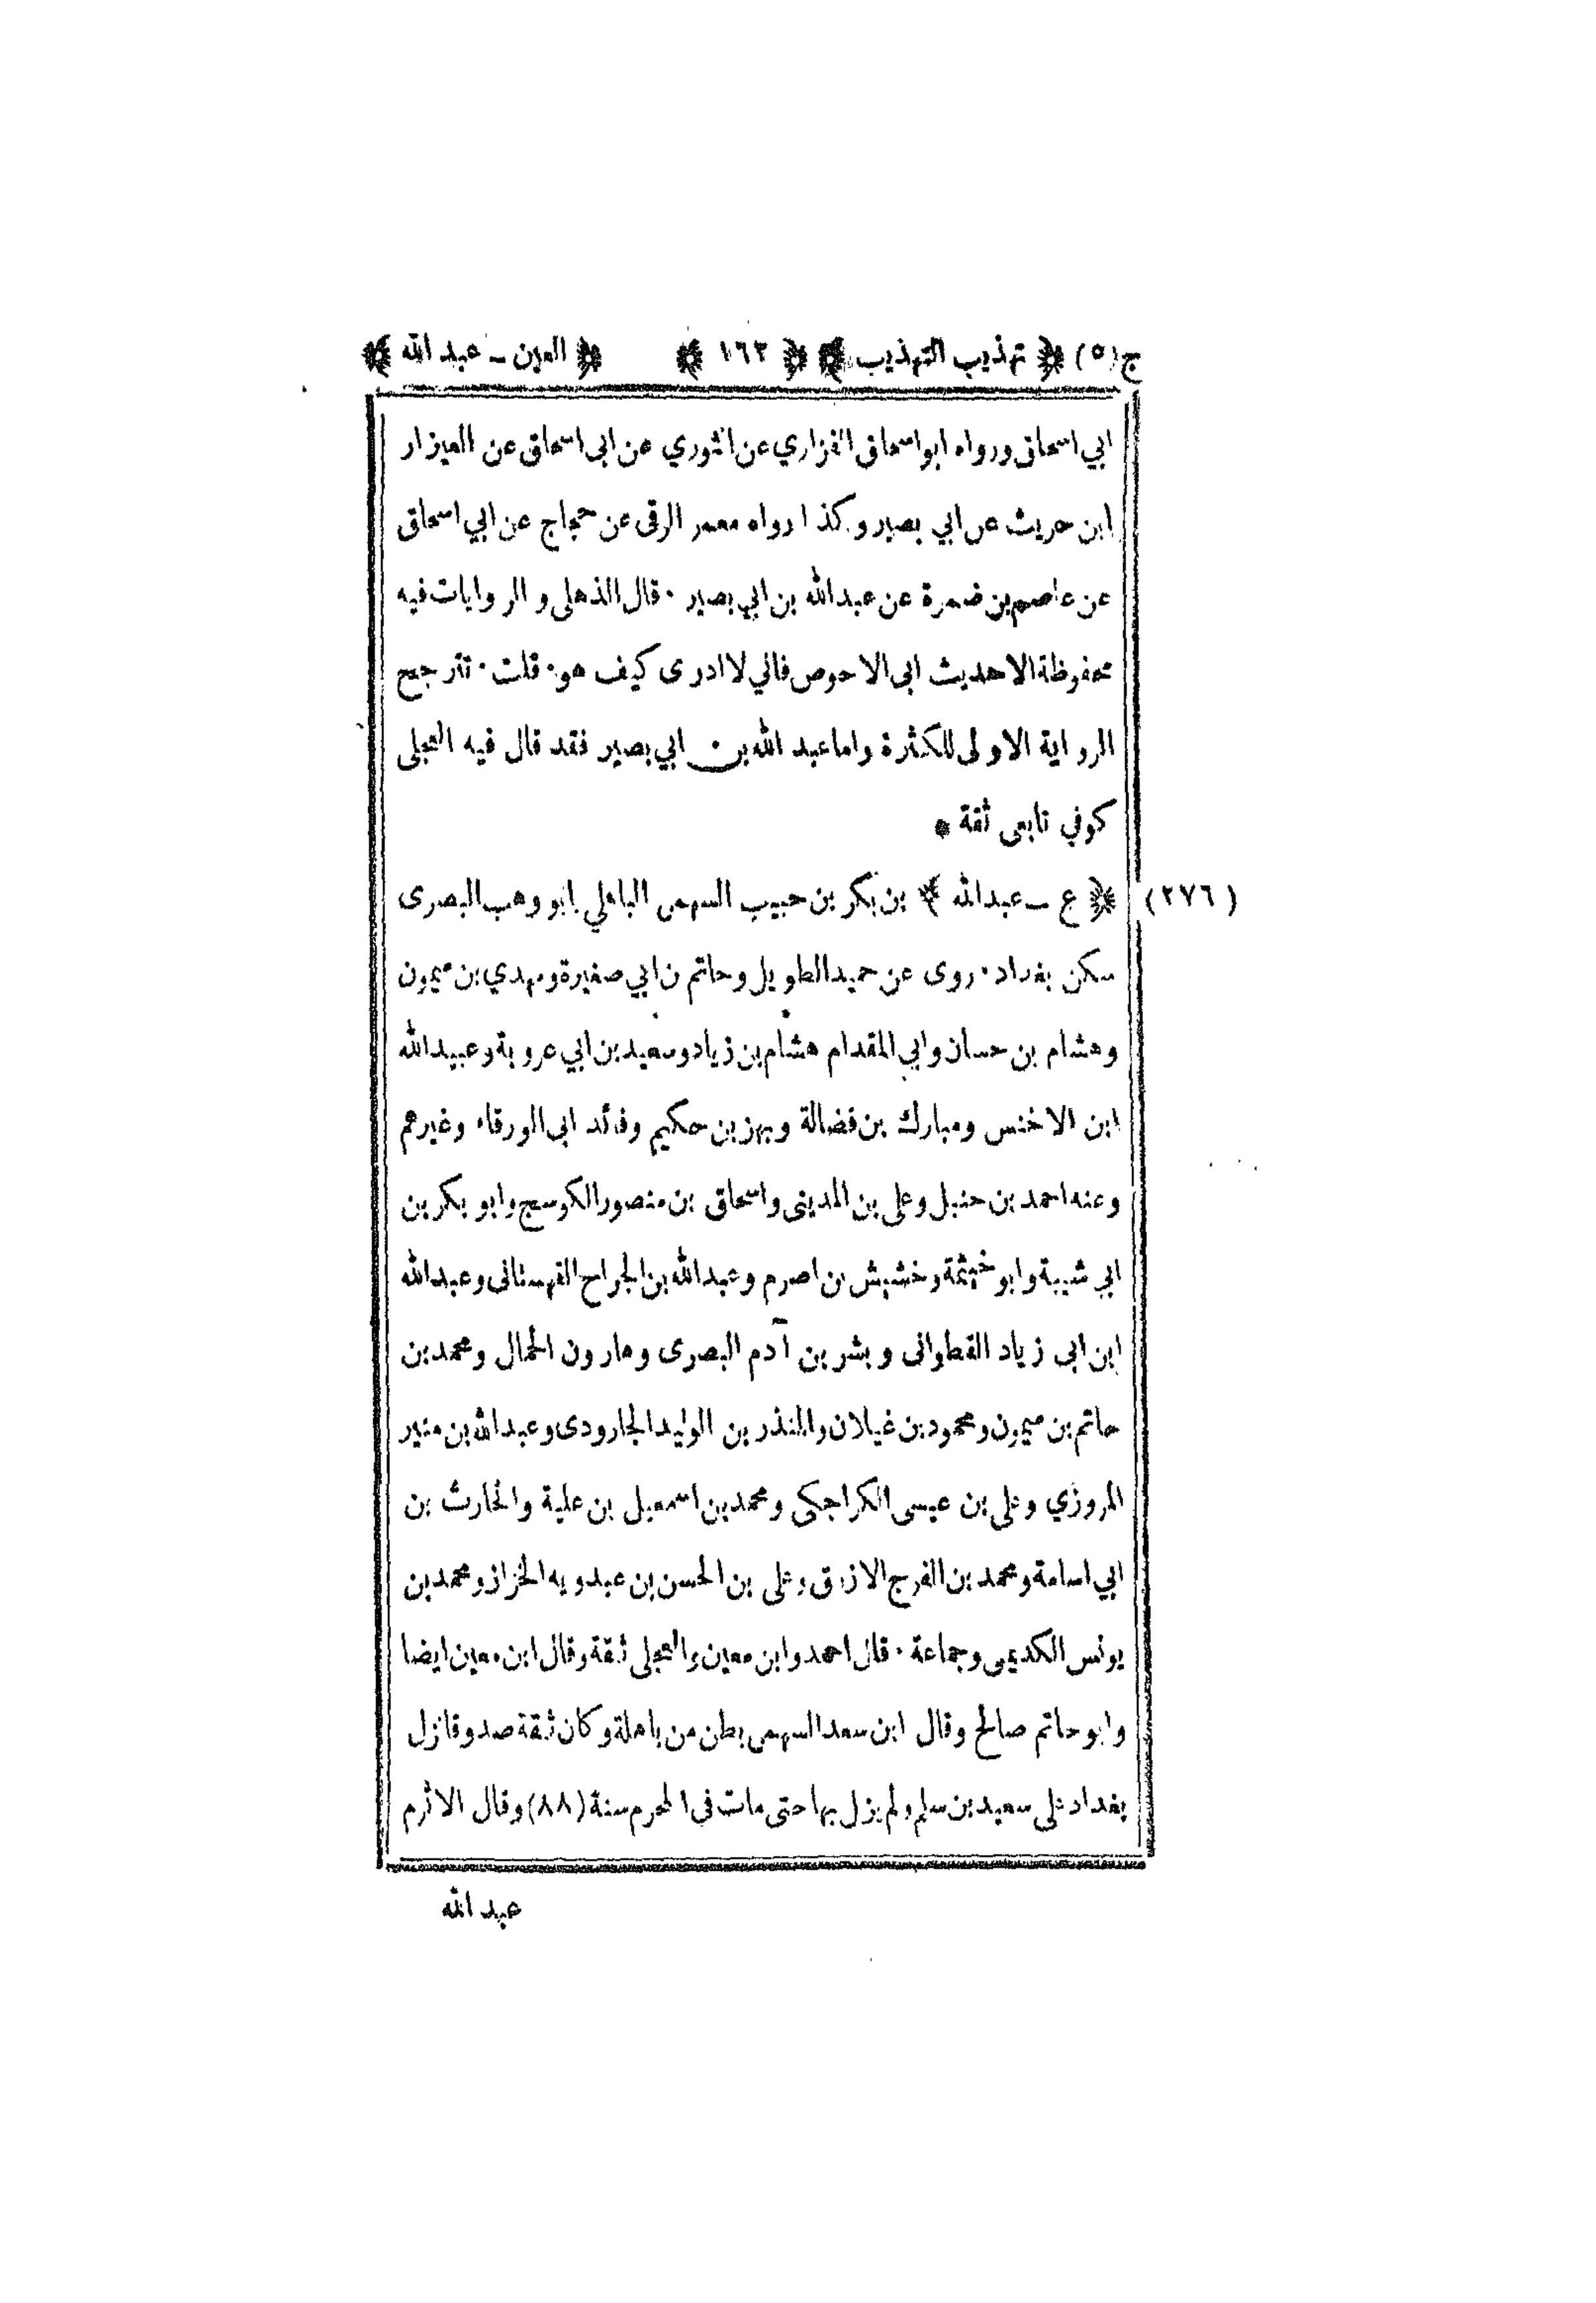 ج (٥) ﴿ تهذيب التهذيب ﴾ ﴿ ١٦٢ ﴾ ﴿ العين ـ عبد الله ﴾
ابي اسحاق ورواه ابو اسحاق الفزاري عن الثوري عن ابى اسحاق عن العيزار
ابن حريث عن ابي بصير وكذا رواه معمر الرقى عن حجاج عن ابي اسحاق
عن عاصم بن ضمرة عن عبدالله بن ابي بصير ٠ قال الذهلى والروايات فيه
محفوظة الاحديث ابى الاحوص فاني لا ادرى كيف هو ٠ قلت ٠ تترجح
الرواية الاولى للكثرة واما عبد الله بن ابي بصير فقد قال فيه العجلى
كوفي تابعى ثقة *
(٢٧٦) ﴿ ع ـ عبدالله ﴾ بن بكر بن حبيب السهمى الباهلي ابو وهب البصرى
سكن بغداد ٠ روى عن حميد الطويل وحاتم بن ابي صغيرة ومهدي بن ميمون
وهشام بن حسان وابي المقدام هشام بن زياد وسعيد بن ابي عروبة وعبيد الله
ابن الاخنس ومبارك بن فضالة وبهز بن حكيم وفائد ابى الورقاء وغيرهم
وعنه احمد بن حنبل وعلى بن المدينى واسحاق بن منصور الكوسج وابو بكر بن
ابي شيبة وابو خيثمة وخشيش بن اصرم وعبدالله بن الجراح القهستانى وعبدالله
ابن ابى زياد القطوانى وبشر بن آدم البصرى وهارون الحمال ومحمد بن
حاتم بن ميمون ومحمود بن غيلان والمنذر بن الوليد الجارودى وعبدالله بن منير
المروزي وعلى بن عيسى الكراجكى ومحمد بن اسمعيل بن علية والحارث بن
ابي اسامة ومحمد بن الفرج الازرق وعلى بن الحسن بن عبدويه الخزاز ومحمد بن
يونس الكديمى وجماعة ٠ قال احمد وابن معين والعجلى ثقة وقال ابن معين ايضا
وابو حاتم صالح وقال ابن سعد السهمى بطن من باهلة وكان ثقة صدوقا نزل
بغداد على سعيد بن سلم ولم يزل بها حتى مات فى المحرم سنة (٨٨) وقال الاثرم
عبد الله